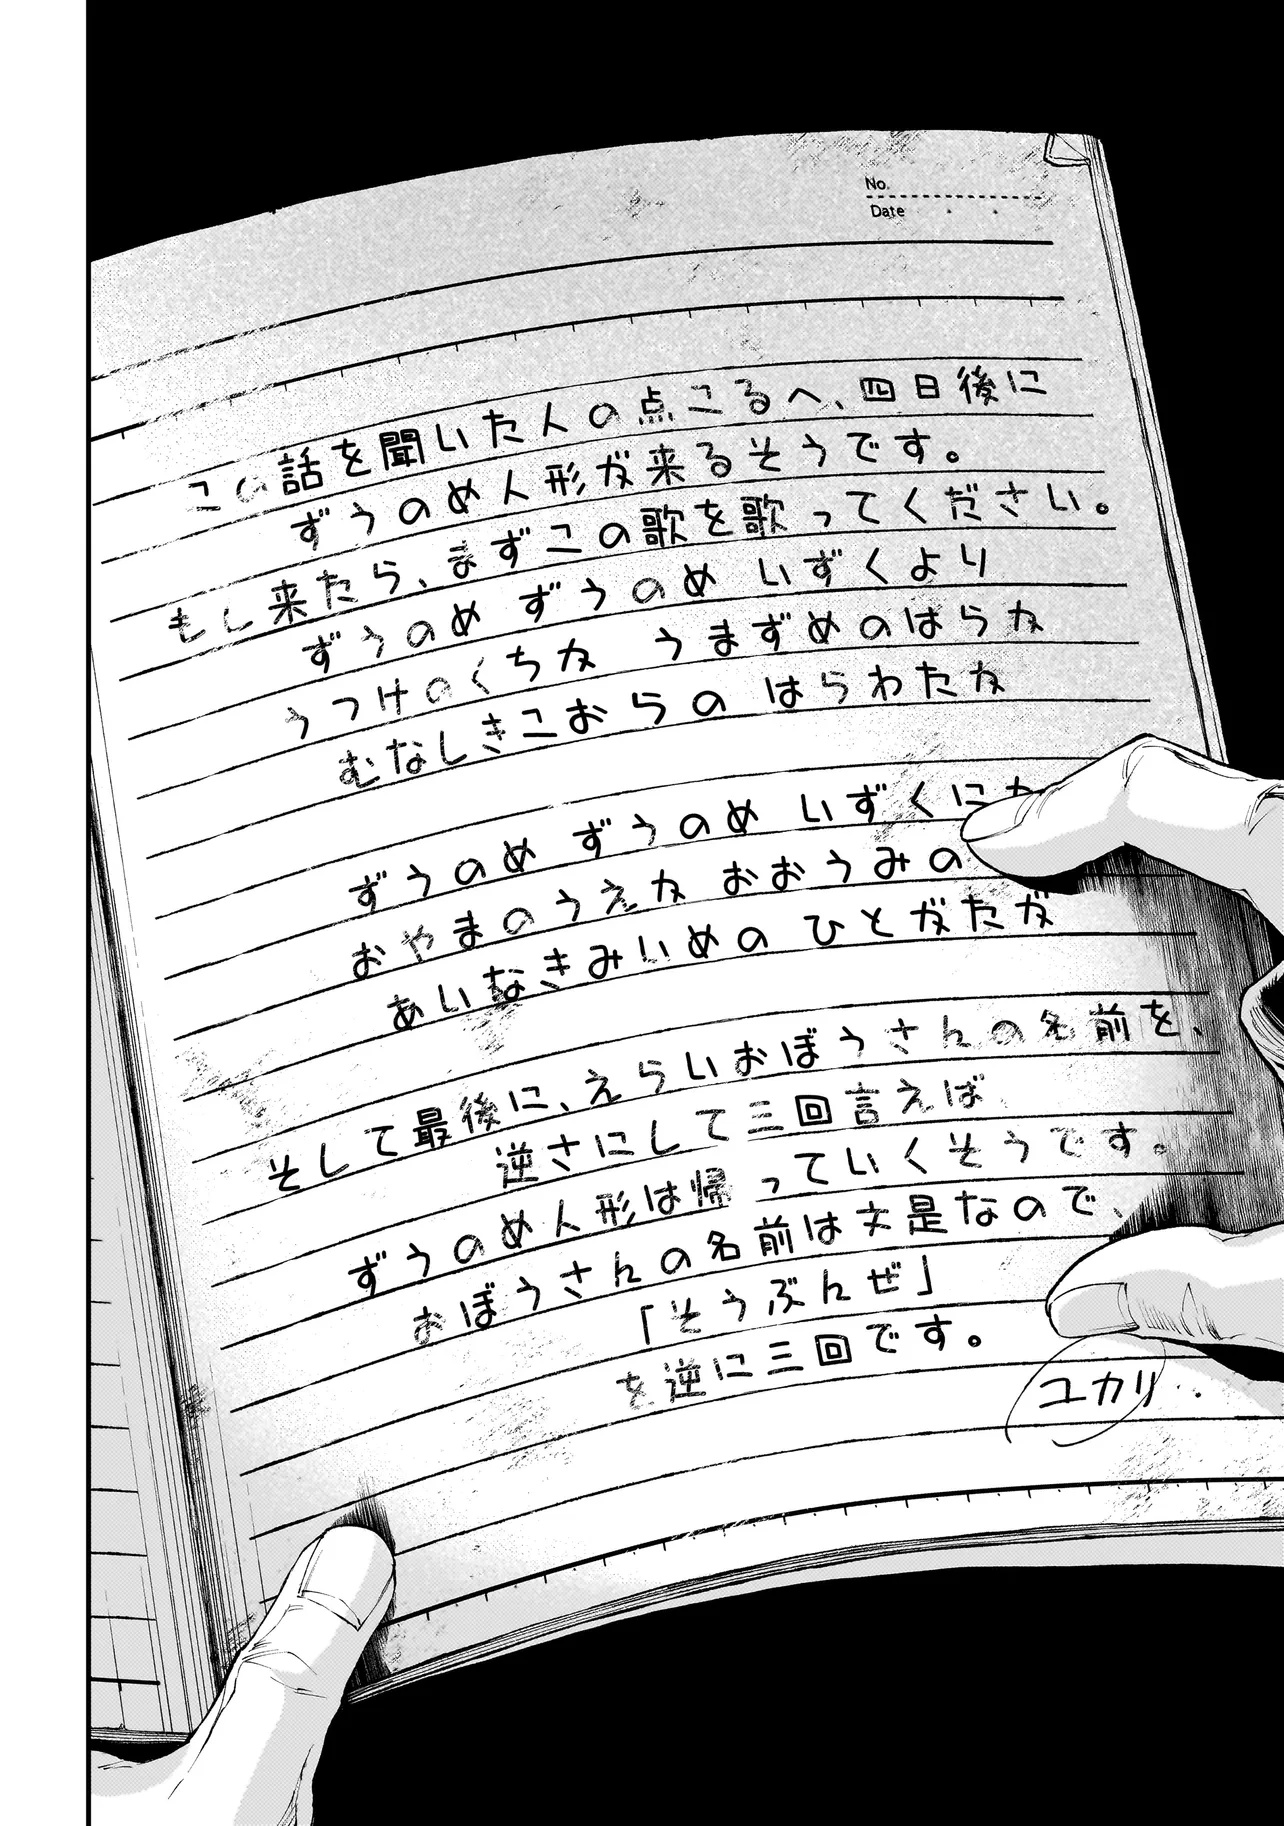 No.
Date
この話を聞いた人の点ころへ、四日後に
ずうのめ人形が来るそうです。
もし来たら、まずこの歌を歌ってください。
ずうのめ ずうのめ いずくより
うつけのくちか うまずめのはらか
むなしきこおらの はらわたか
ずうのめ ずうのめ いずくにか
おやまのうえか おおうみの
あいなきみいめの ひとがたが
そして最後に、えらいおぼうさんの名前を、
逆さにして三回言えば、
ずうのめ人形は帰っていくそうです。
おぼうさんの名前は大是なので、
「そうぶんぜ」
を逆に三回です。
ユカリ